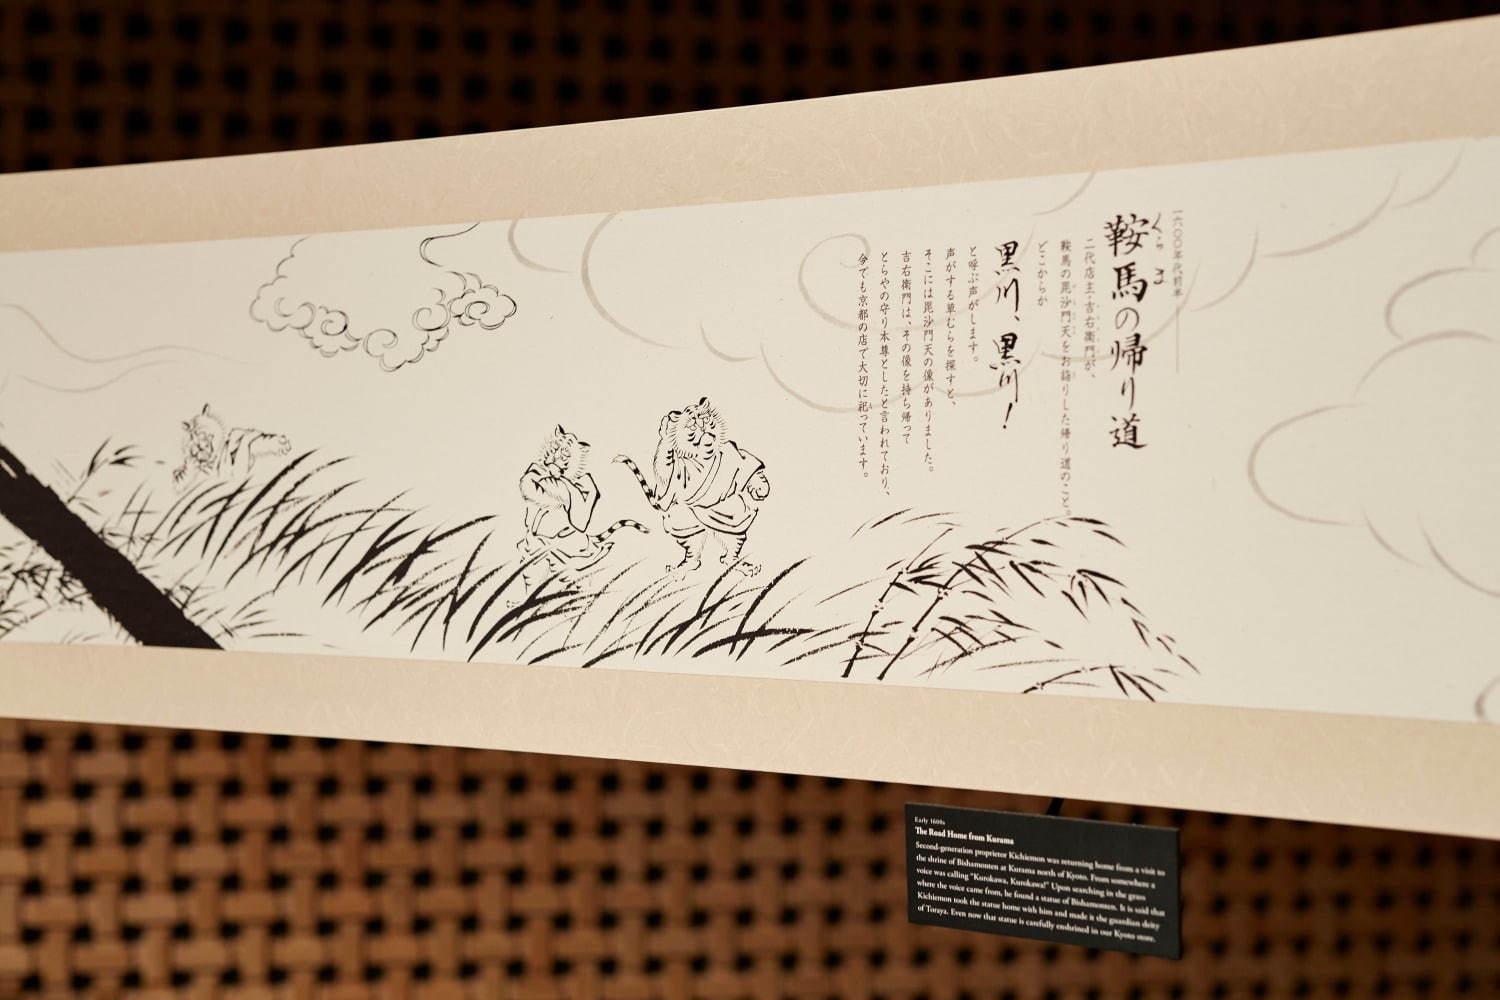 一六〇〇年代前半
くらま
鞍馬の帰り道
二代店主・吉右衛門が、
鞍馬の毘沙門天をお詣りした帰り道のこと。
どこからか
黒川、黒川！
と呼ぶ声がします。
声がする草むらを探すと、
そこには毘沙門天の像がありました。
吉右衛門は、その像を持ち帰って
とらやの守り本尊としたと言われており、
今でも京都の店で大切に祀っています。
Early 1600s
The Road Home from Kurama
Second-generation proprietor Kichiemon was returning home from a visit to
the shrine of Bishamonten at Kurama north of Kyoto. From somewhere a
voice was calling “Kurokawa, Kurokawa!” Upon searching in the grass
where the voice came from, he found a statue of Bishamonten. It is said that
Kichiemon took the statue home with him and made it the guardian deity
of Toraya. Even now that statue is carefully enshrined in our Kyoto store.